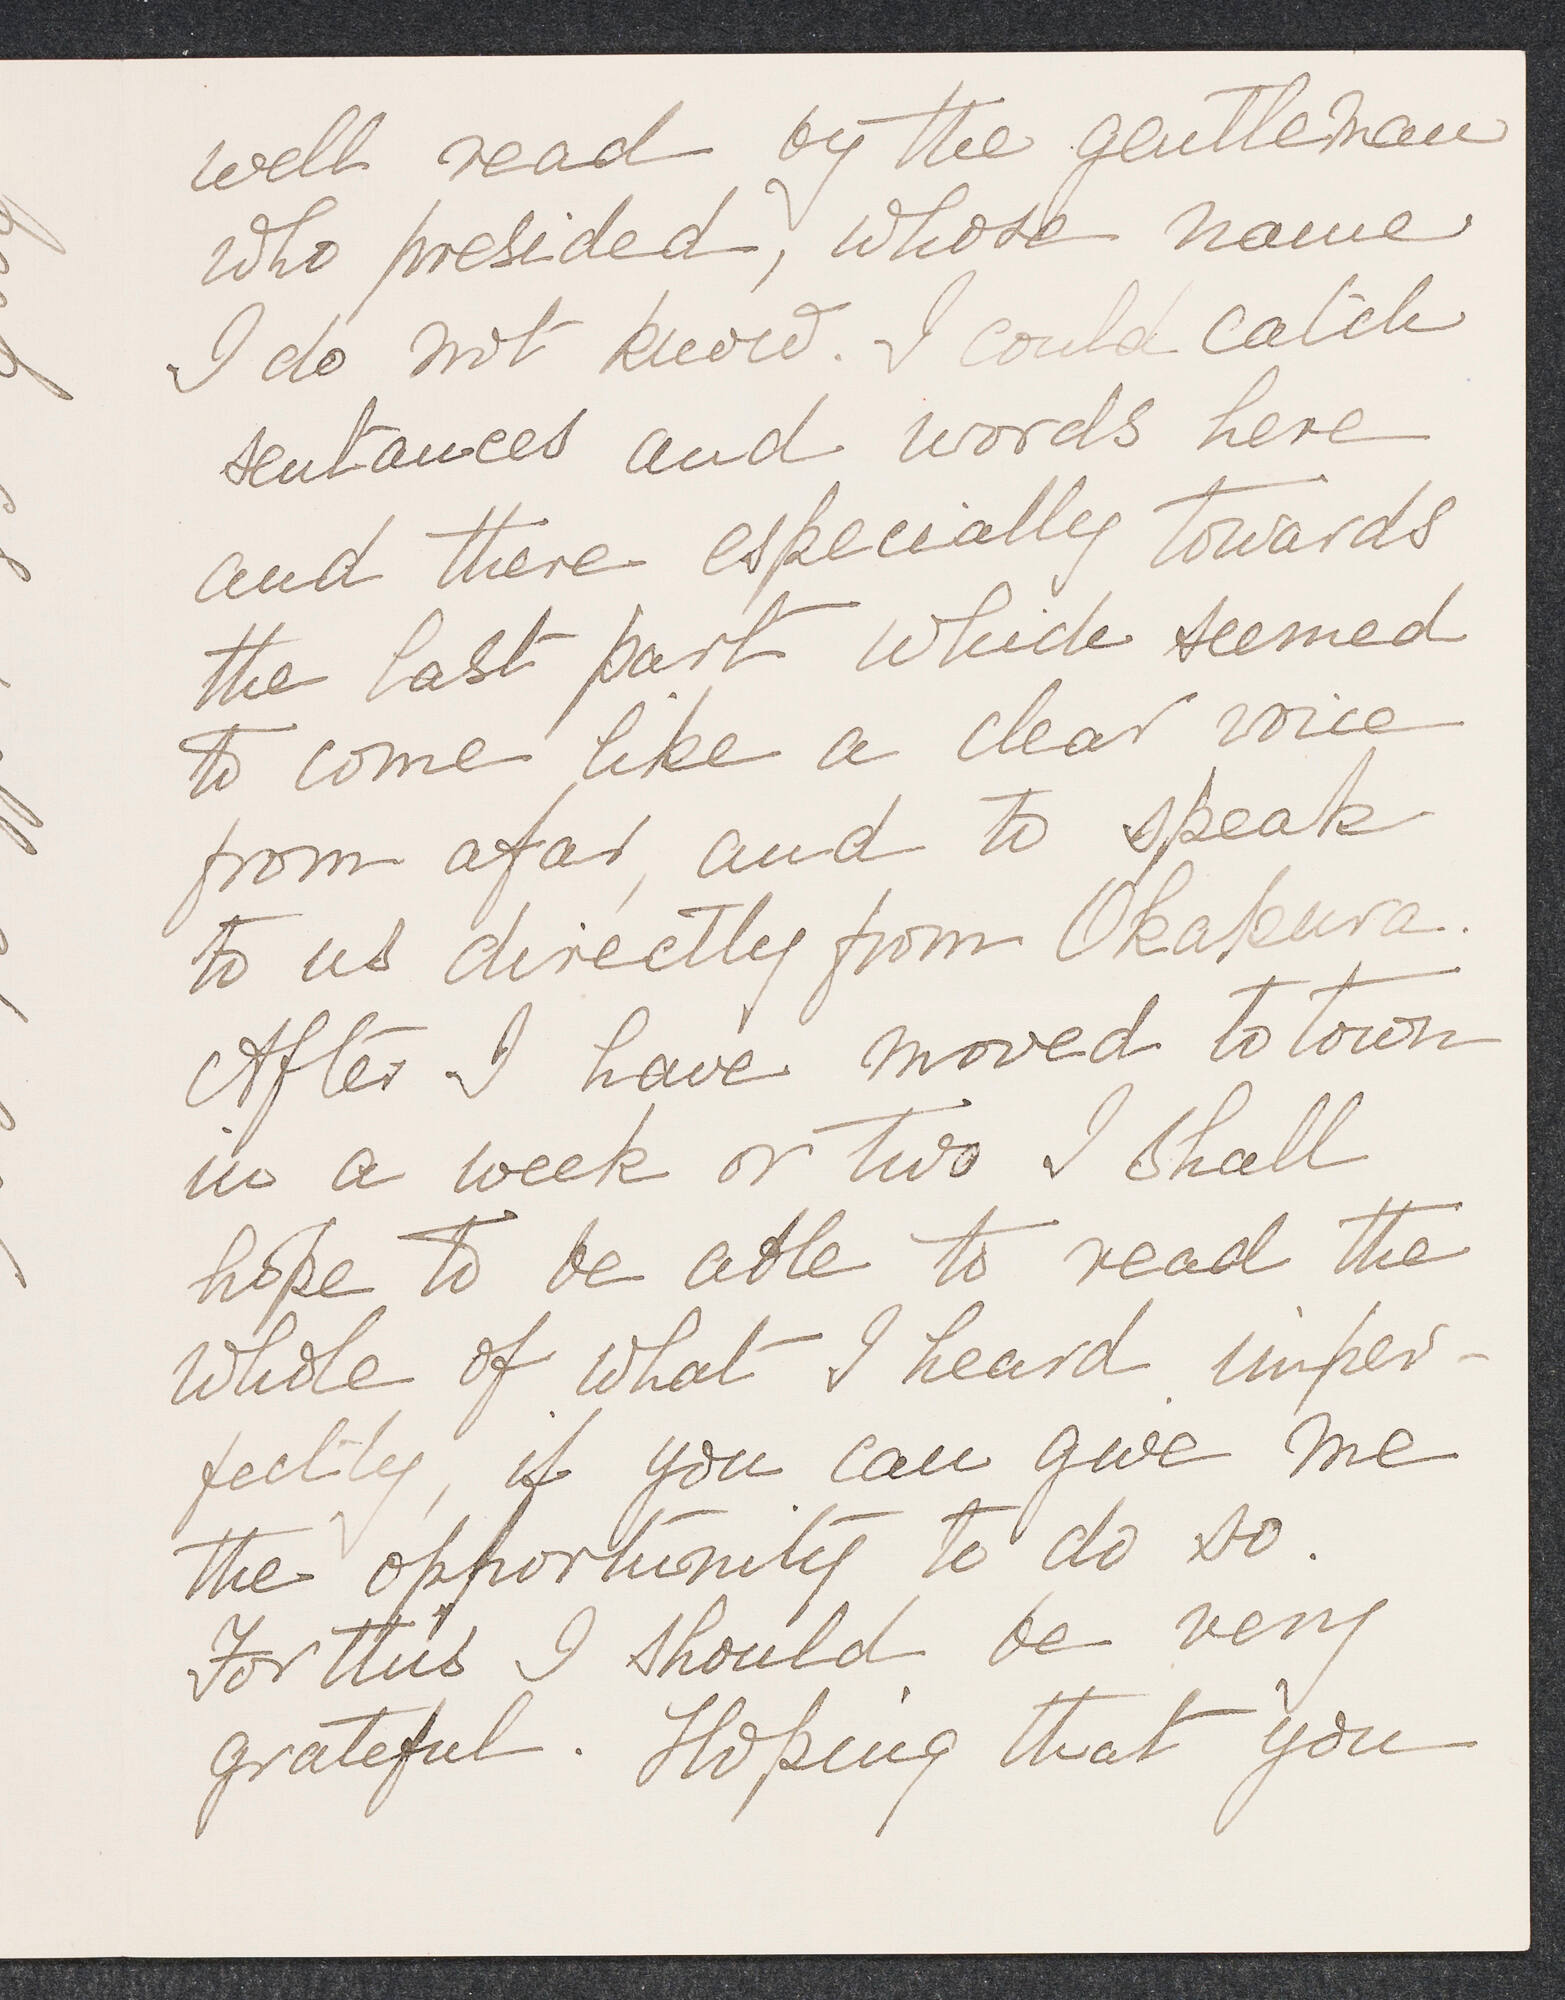 well read by the gentleman
who presided, whose name
I do not know. I could catch
sentances and words here
and there especially towards
the last part which seemed
to come like a clear voice
from afar, and to speak
to us directly from Okakura.
After I have moved to town
in a week or two I shall
hope to be able to read the
whole of what I heard imper-
fectly, if you can give me
the opportunity to do so.
For this I should be very
grateful. Hoping that you